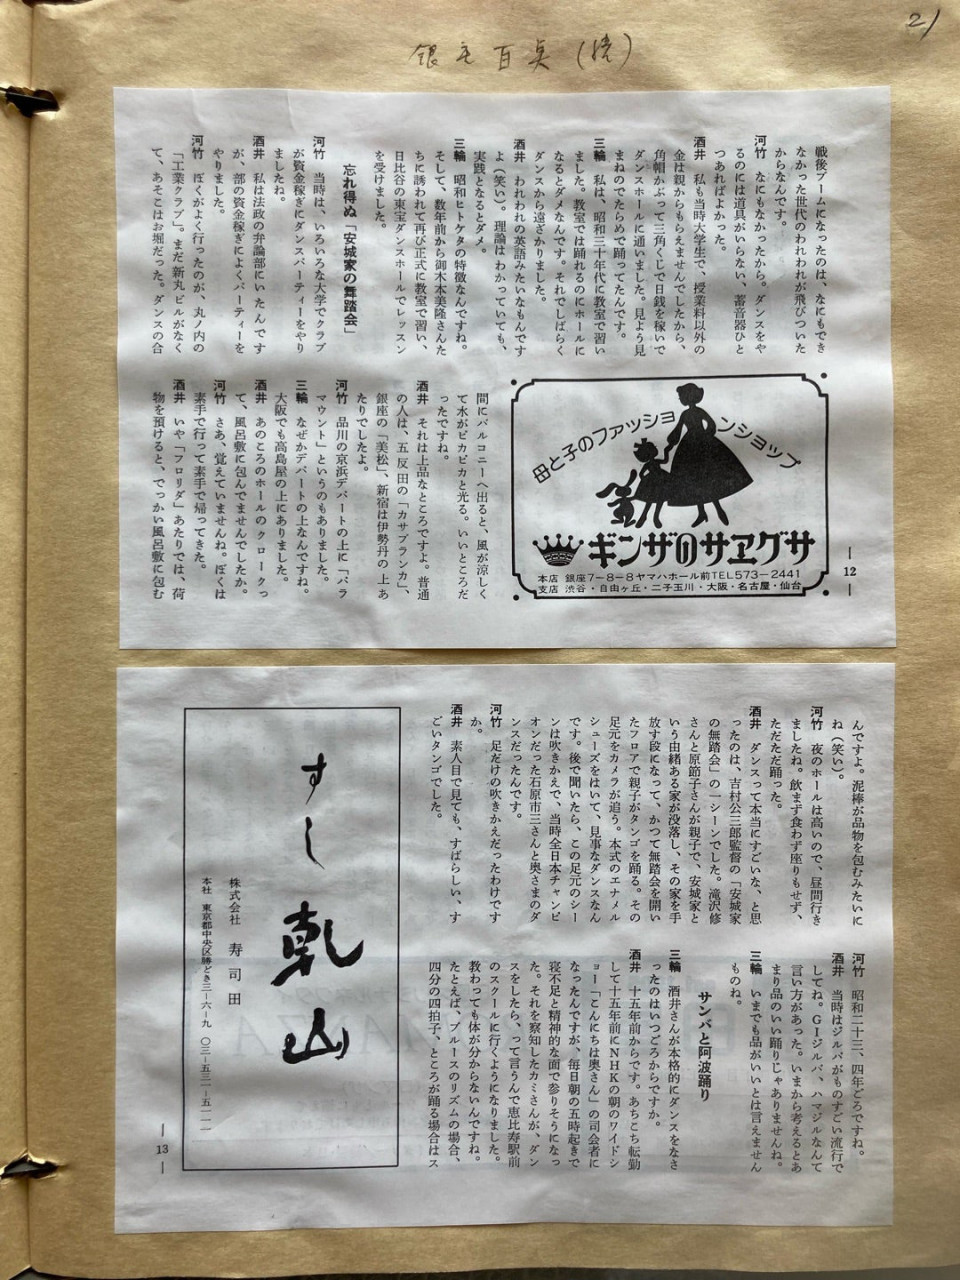 21
銀座百点(続)
戦後ブームになったのは、なにもでき
なかった世代のわれわれが飛びついた
からなんです。
河竹 なにもなかったから。ダンスをや
るのには道具がいらない、蓄音器ひと
つあればよかった。
酒井 私も当時大学生で、授業料以外の
金は親からもらえませんでしたから、
角帽かぶって三角くじで日銭を稼いで
ダンスホールに通いました。見よう見
まねのでたらめで踊ってたんです。
三輪 私は、昭和三十年代に教室で習い
ました。教室では踊れるのにホールに
なるとダメなんです。それでしばらく
ダンスから遠ざかりました。
酒井 われわれの英語みたいなもんです
よ(笑い)。理論はわかっていても、
実践となるとダメ。
三輪 昭和ヒトケタの特徴なんですね。
そして、数年前から御木本美隆さんた
ちに誘われて再び正式に教室で習い、
日比谷の東宝ダンスホールでレッスン
を受けました。
忘れ得ぬ「安城家の舞踏会」
河竹 当時は、いろいろな大学でクラブ
が資金稼ぎにダンスパーティーをやり
ましたね。
酒井 私は法政の弁論部にいたんです
が、部の資金稼ぎによくパーティーを
やりました。
河竹 ぼくがよく行ったのが、丸ノ内の
「工業クラブ」。まだ新丸ビルがなく
て、あそこはお堀だった。ダンスの合
母と子のファッションショップ
ギンザのサヱグサ
本店 銀座7-8-8ヤマハホール前TEL573-2441
支店 渋谷・自由ヶ丘・二子玉川・大阪・名古屋・仙台
12
間にバルコニーへ出ると、風が涼しく
て水がピカピカと光る。いいところだ
ったですね。
酒井 それは上品なところですよ。普通
の人は、五反田の「カサブランカ」、
銀座の「美松」、新宿は伊勢丹の上あ
たりでしたよ。
河竹 品川の京浜デパートの上に「パラ
マウント」というのもありました。
三輪 なぜかデパートの上なんですね。
大阪でも高島屋の上にありました。
酒井 あのころのホールのクロークっ
て、風呂敷に包んでませんでしたか。
河竹 さあ、覚えていませんね。ぼくは
素手で行って素手で帰ってきた。
酒井 いや「フロリダ」あたりでは、荷
物を預けると、でっかい風呂敷に包む
んですよ。泥棒が品物を包むみたいに
ね(笑い)。
河竹 夜のホールは高いので、昼間行き
ましたね。飲まず食わず座りもせず、
ただただ踊った。
酒井 ダンスって本当にすごいな、と思
ったのは、吉村公三郎監督の「安城家
の無踏会」の一シーンでした。滝沢修
さんと原節子さんが親子で、安城家と
いう由緒ある家が没落し、その家を手
放す段になって、かつて無踏会を開い
たフロアで親子がタンゴを踊る。その
足元をカメラが追う。本式のエナメル
シューズをはいて、見事なダンスなん
です。後で聞いたら、この足元のシー
ンは吹きかえで、当時全日本チャンピ
オンだった石原市三さんと奥さまのダ
ンスだったんです。
河竹 足だけの吹きかえだったわけです
か。
酒井 素人目で見ても、すばらしい、す
ごいタンゴでした。
河竹 昭和二十三、四年ごろですね。
酒井 当時はジルバがものすごい流行で
してね。GIジルバ、ハマジルなんて
言い方があった。いまから考えるとあ
まり品のいい踊りじゃありませんね。
三輪 いまでも品がいいとは言えません
ものね。
サンバと阿波踊り
三輪 酒井さんが本格的にダンスをなさ
ったのはいつごろからですか。
酒井 十五年前からです。あちこち転勤
して十五年前にNHKの朝のワイドシ
ョー「こんにちは奥さん」の司会者に
なったんですが、毎日朝の五時起きで
寝不足と精神的な面で参りそうになっ
た。それを察知したカミさんが、ダン
スをしたら、って言うんで恵比寿駅前
のスクールに行くようになりました。
教わっても体が分からないんですね。
たとえば、ブルースのリズムの場合、
四分の四拍子、ところが踊る場合はス
すし乾山
株式会社 寿司田
本社 東京都中央区勝どき三-六-九 〇三-五三一-五一一一
13